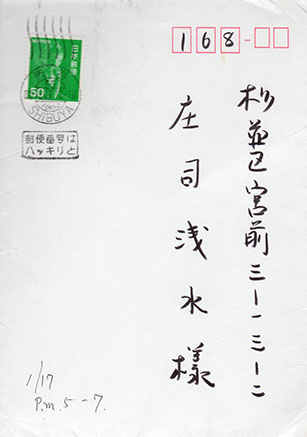 168
杉並区宮前三ー一三ー二
庄司浅水様
日本郵便
50
SHIBUYA
郵便番号は
ハッキリと
1/17
P.m. 5-7.